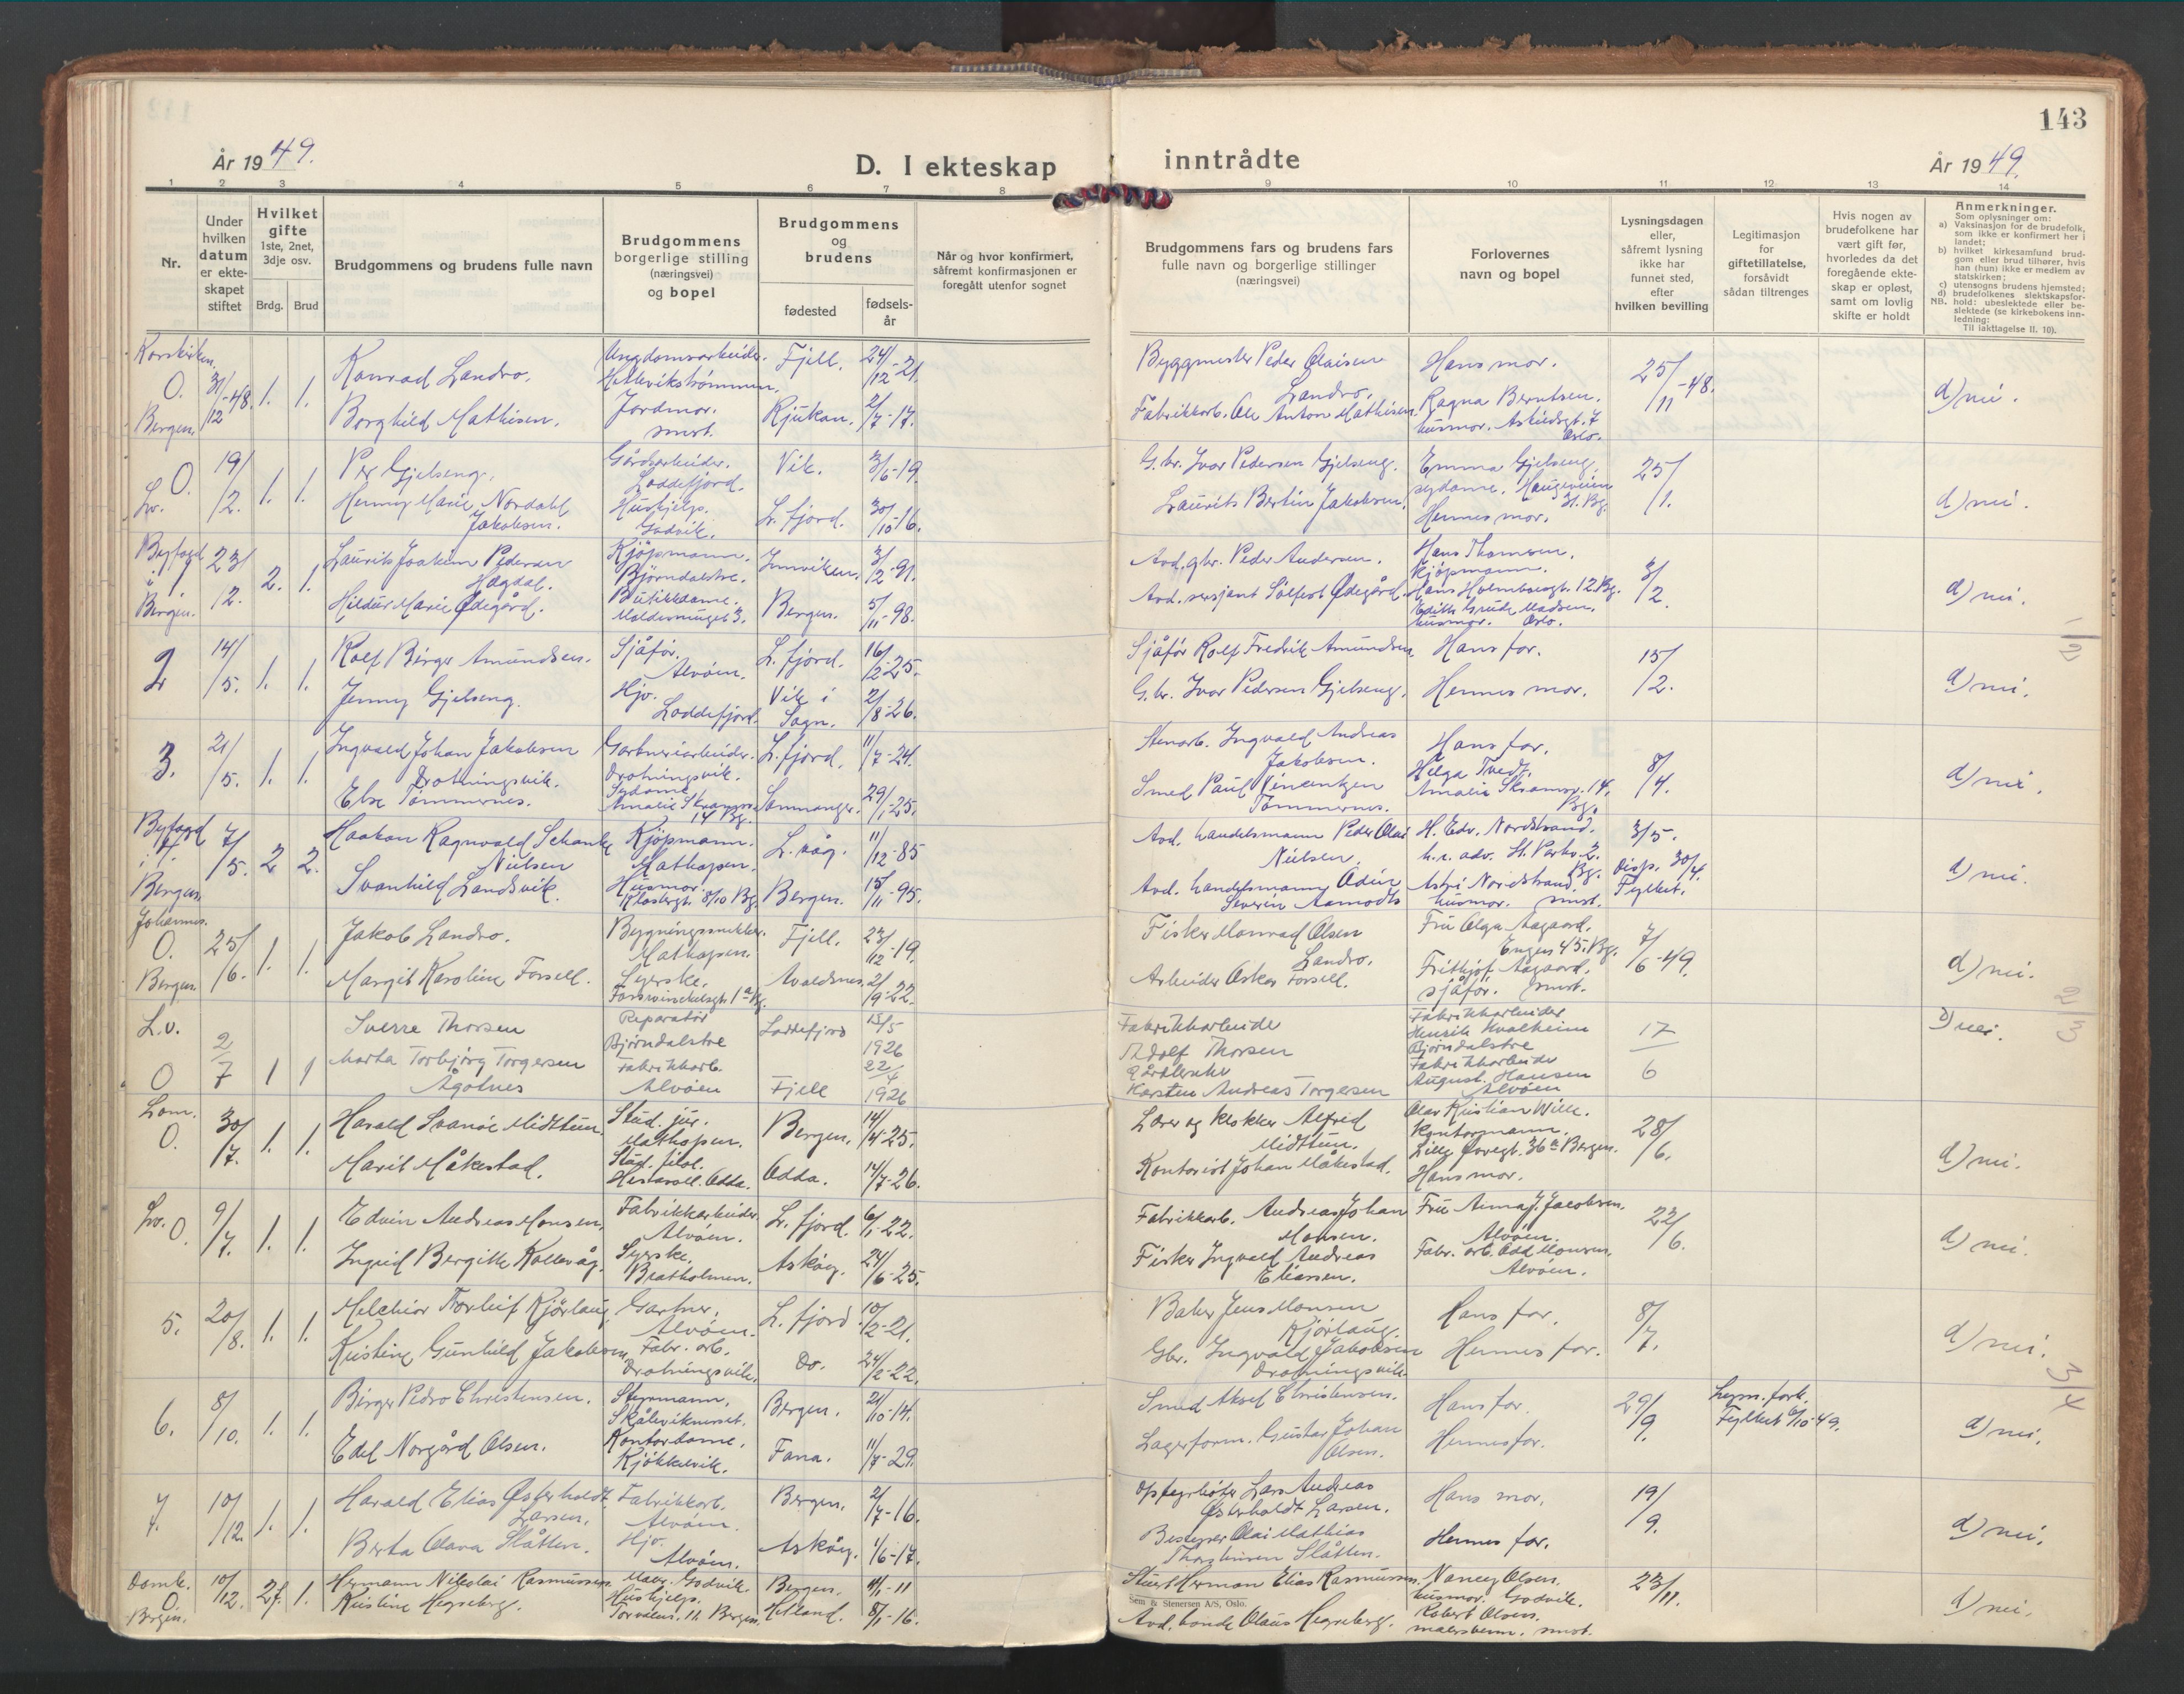 143
År 1949.
D. I ekteskap
inntrådte
År 1949.
1 2 3 4 5 6 7 8 9 10 11 12 13 14
Nr.
Under hvilken datum er ekteskapet stiftet
Hvilket gifte
1ste, 2net, 3dje osv.
Brdg. Brud
Brudgommens og brudens fulle navn
Brudgommens borgerlige stilling (næringsvei) og bopel
Brudgommens og brudens
fødested
fødselsår
Når og hvor konfirmert, såfremt konfirmasjonen er foregått utenfor sognet
Brudgommens fars og brudens fars fulle navn og borgerlige stillinger (næringsvei)
Forlovernes navn og bopel
Lysningsdagen eller, såfremt lysning ikke har funnet sted, efter hvilken bevilling
Legitimasjon for giftetillatelse, forsåvidt sådan tiltrenges
Hvis nogen av brudefolkene har vært gift før, hvorledes da det foregående ekteskap er opløst, samt om lovlig skifte er holdt
Anmerkninger.
Som oplysninger om:
a) Vaksinasjon for de brudefolk, som ikke er konfirmert her i landet;
b) hvilket kirkesamfund brudgom eller brud tilhører, hvis han (hun) ikke er medlem av statskirken;
c) utensogns brudens hjemsted;
d) brudefolkenes slektskapsforhold: ubeslektede eller beslektede (se kirkebokens innledning;
NB. Til iakttagelse II. 10).
Korskirken, O. Bergen. 31/12-48. 1. 1.
Konrad Landro. Ungdomsarbeider. Hetlevikstrømmen. Fjell. 24/12-21.
Byggmester Peder Olaisen Landro. Hans mor. 25/11-48. d) nei.
Borghild Mathisen. Jordmor. smst. Rjukan. 2/7-17.
Fabrikkarb. Ole Anton Mathisen. Ragna Berntsen. husmor. Oslo.
Lv. O. 19/2. 1. 1.
Per Gjelseng. Gårdsarbeider. Loddefjord. Vik. 3/6-19.
G.br. Ivar Pedersen Gjelseng. Emma Gjelseng, sydame, Haugeveien 31. Bg. 25/1. d) nei.
Henny Marie Nordahl Jakobsen. Hushjelp. Godvik. L. fjord. 30/10-16.
Laurits Bertin Jakobsen. Hennes mor.
Byfogd i Bergen. 23/2. 2. 1.
Laurits Joakim Pedersen Hagdal. Kjøpmann. Bjørndalstre. Innviken. 3/2-91.
Avd. gbr. Peder Andersen. Hans Thomsen. kjøpmann. Hans Holmboesgt. 12 Bg. 3/2. d) nei.
Hildur Marie Ødegård. Butikkdame. Bergen. 5/11-98.
Avd. sersjant Sølfest Ødegård. Edith Madsen, husmor. Oslo.
2 14/5. 1. 1.
Rolf Birger Amundsen. Sjåfør. Alvøen. L. fjord. 16/2-25.
Sjåfør Rolf Fredrik Amundsen Hans far. 15/2. d) nei.
Jenny Gjelseng. Hjv. Loddefjord. Vik i Sogn. 2/8-26.
G.br. Ivar Pedersen Gjelseng. Hennes mor.
3. 21/5. 1. 1.
Ingvald Johan Jakobsen Drotningsvik. Gartneriarbeider. Drotningsvik. L. fjord. 11/7-24.
Stenarb. Ingvald Andreas Jakobsen. Hans far. 8/4. d) nei.
Else Tømmernes. Sydame Amalie Skramsv. 14 Bg. Samnanger. 29/1-25.
Smed Paul Vincentzen Tømmernes. Helga Tvedt, Amalie Skramsv. 14. Bg.
Byfogd i Bergen. 7/5. 2 2.
Haakon Ragnvald Schanke Nielsen Kjøpmann. Mathopen. L. våg. 11/12-85
Avd. handelsmann Peder Olai Nielsen. H. Edv. Nordstrand. h.r. adv. St. Parkv. 2. Bg. 3/5. Disp. 30/4. Fylket. d) nei.
Svanhild Landsvik. Husmor. Klostergt. 8/10 Bg. Bergen. 15/11-95.
Avd. handelsmann Odin Severin Aamodts Astri Nordstrand. husmor. smst.
Johannes. O. Bergen. 25/6. 1. 1.
Jakob Landro. Bygningssnekker. Mathopen. Fjell. 23/12-19.
Fisker Monrad Olsen Landro. Fru Olga Aagaard. Engen 45. Bg. 7/6-49. d) nei.
Margit Karoline Forsell. Syerske. Avaldsnes. 2/9-22.
Arbeider Oskar Forsell. Frithjof Aagaard. sjåfør. smst.
L.v. O 2/7 1 1
Sverre Thorsen Reparatør Bjørndalstre Loddefjord 15/5 1926
Fabrikkarbeide Adolf Thorsen Fabrikkarbeider Henrik Kvalheim Bjørndalstre 17/6 d) nei.
Marta Torbjørg Torgersen Ågotnes Fabrikkarb. Alvøen Fjell 22/4 1926
Karsten Andreas Torgersen Fabrikkarbeide August Hansen Alvøen
Lom. O. 30/7. 1. 1.
Harald Svanøe Midttun. Stud. jur. Mathopen. Bergen. 14/4-25.
Lærer og klokker Alfred Midttun. Olav Kristian Wille. Kontormann. Lille Øvregt. 36a Bergen. 28/6. d) nei.
Marit Måkestad. Stud. filol. Odda. Odda. 14/7-26.
Kontorist Johan Måkestad. Hans mor.
Lv. O. 9/7. 1. 1.
Edvin Andreas Monsen, Fabrikkarbeider. Alvøen. L. fjord. 6/1-22.
Fabrikkarb. Andreas Johan Monsen. Fru Anna J. Jacobsen. Alvøen. 22/6. d) nei.
Ingrid Bergitte Kollevåg. Syerske. Bratholmen. Askøy. 24/6-25.
Fisker Ingvald Andreas Eliassen. Fabr. arb. Odd Monsen. Alvøen.
5. 20/8. 1. 1.
Melchior Torleif Kjørlaug. Gartner. Alvøen. L. fjord. 10/2-21.
Baker Jens Monsen Kjørlaug. Hans far. 8/7. d) nei.
Kristine Gunhild Jakobsen Fabr. arb. Drotningsvik. Do. 24/2-22.
Gbr. Ingvald Jakobsen Drotningsvik. Hennes far.
6. 8/10. 1. 1.
Birger Pedro Christensen. Styrmann. Skåleviknesset. Bergen. 21/10-14.
Smed Aksel Christensen. Hans far. 29/9. Lysn. fork. Fylket 6/10-49. d) nei.
Edel Norgård Olsen. Kontordame. Kjøkkelvik. Fana. 11/7-29.
Lagerform. Gustav Johan Olsen. Hennes far.
7. 10/12. 1. 1.
Harald Elias Østerholdt Larsen. Fabrikkarb. Alvøen. Bergen. 2/7-16.
Opfyrbøter Lars Andreas Østerholdt Larsen. Hans mor. 19/9. d) nei.
Berta Olava Slåtten. Hjv. Alvøen. Askøy. 1/6-17.
Bestyrer Olai Mathias Thorsteinsen Slåtten. Hennes far.
Domk. O. Bergen. 10/12. 2f. 1.
Hermann Nikolai Rasmussen. Maler. Godvik. Bergen. 4/1-11
Stuert Herman Elias Rasmussen. Nancy Olsen. husmor. Godvik. 23/11. d) nei.
Kristine Hegreberg. Hushjelp. Bergen. Hetland. 8/1-16.
Avd. bonde Olaus Hegreberg. Robert Olsen. malersvenn. smst.
Sem & Stenersen A/S, Oslo.